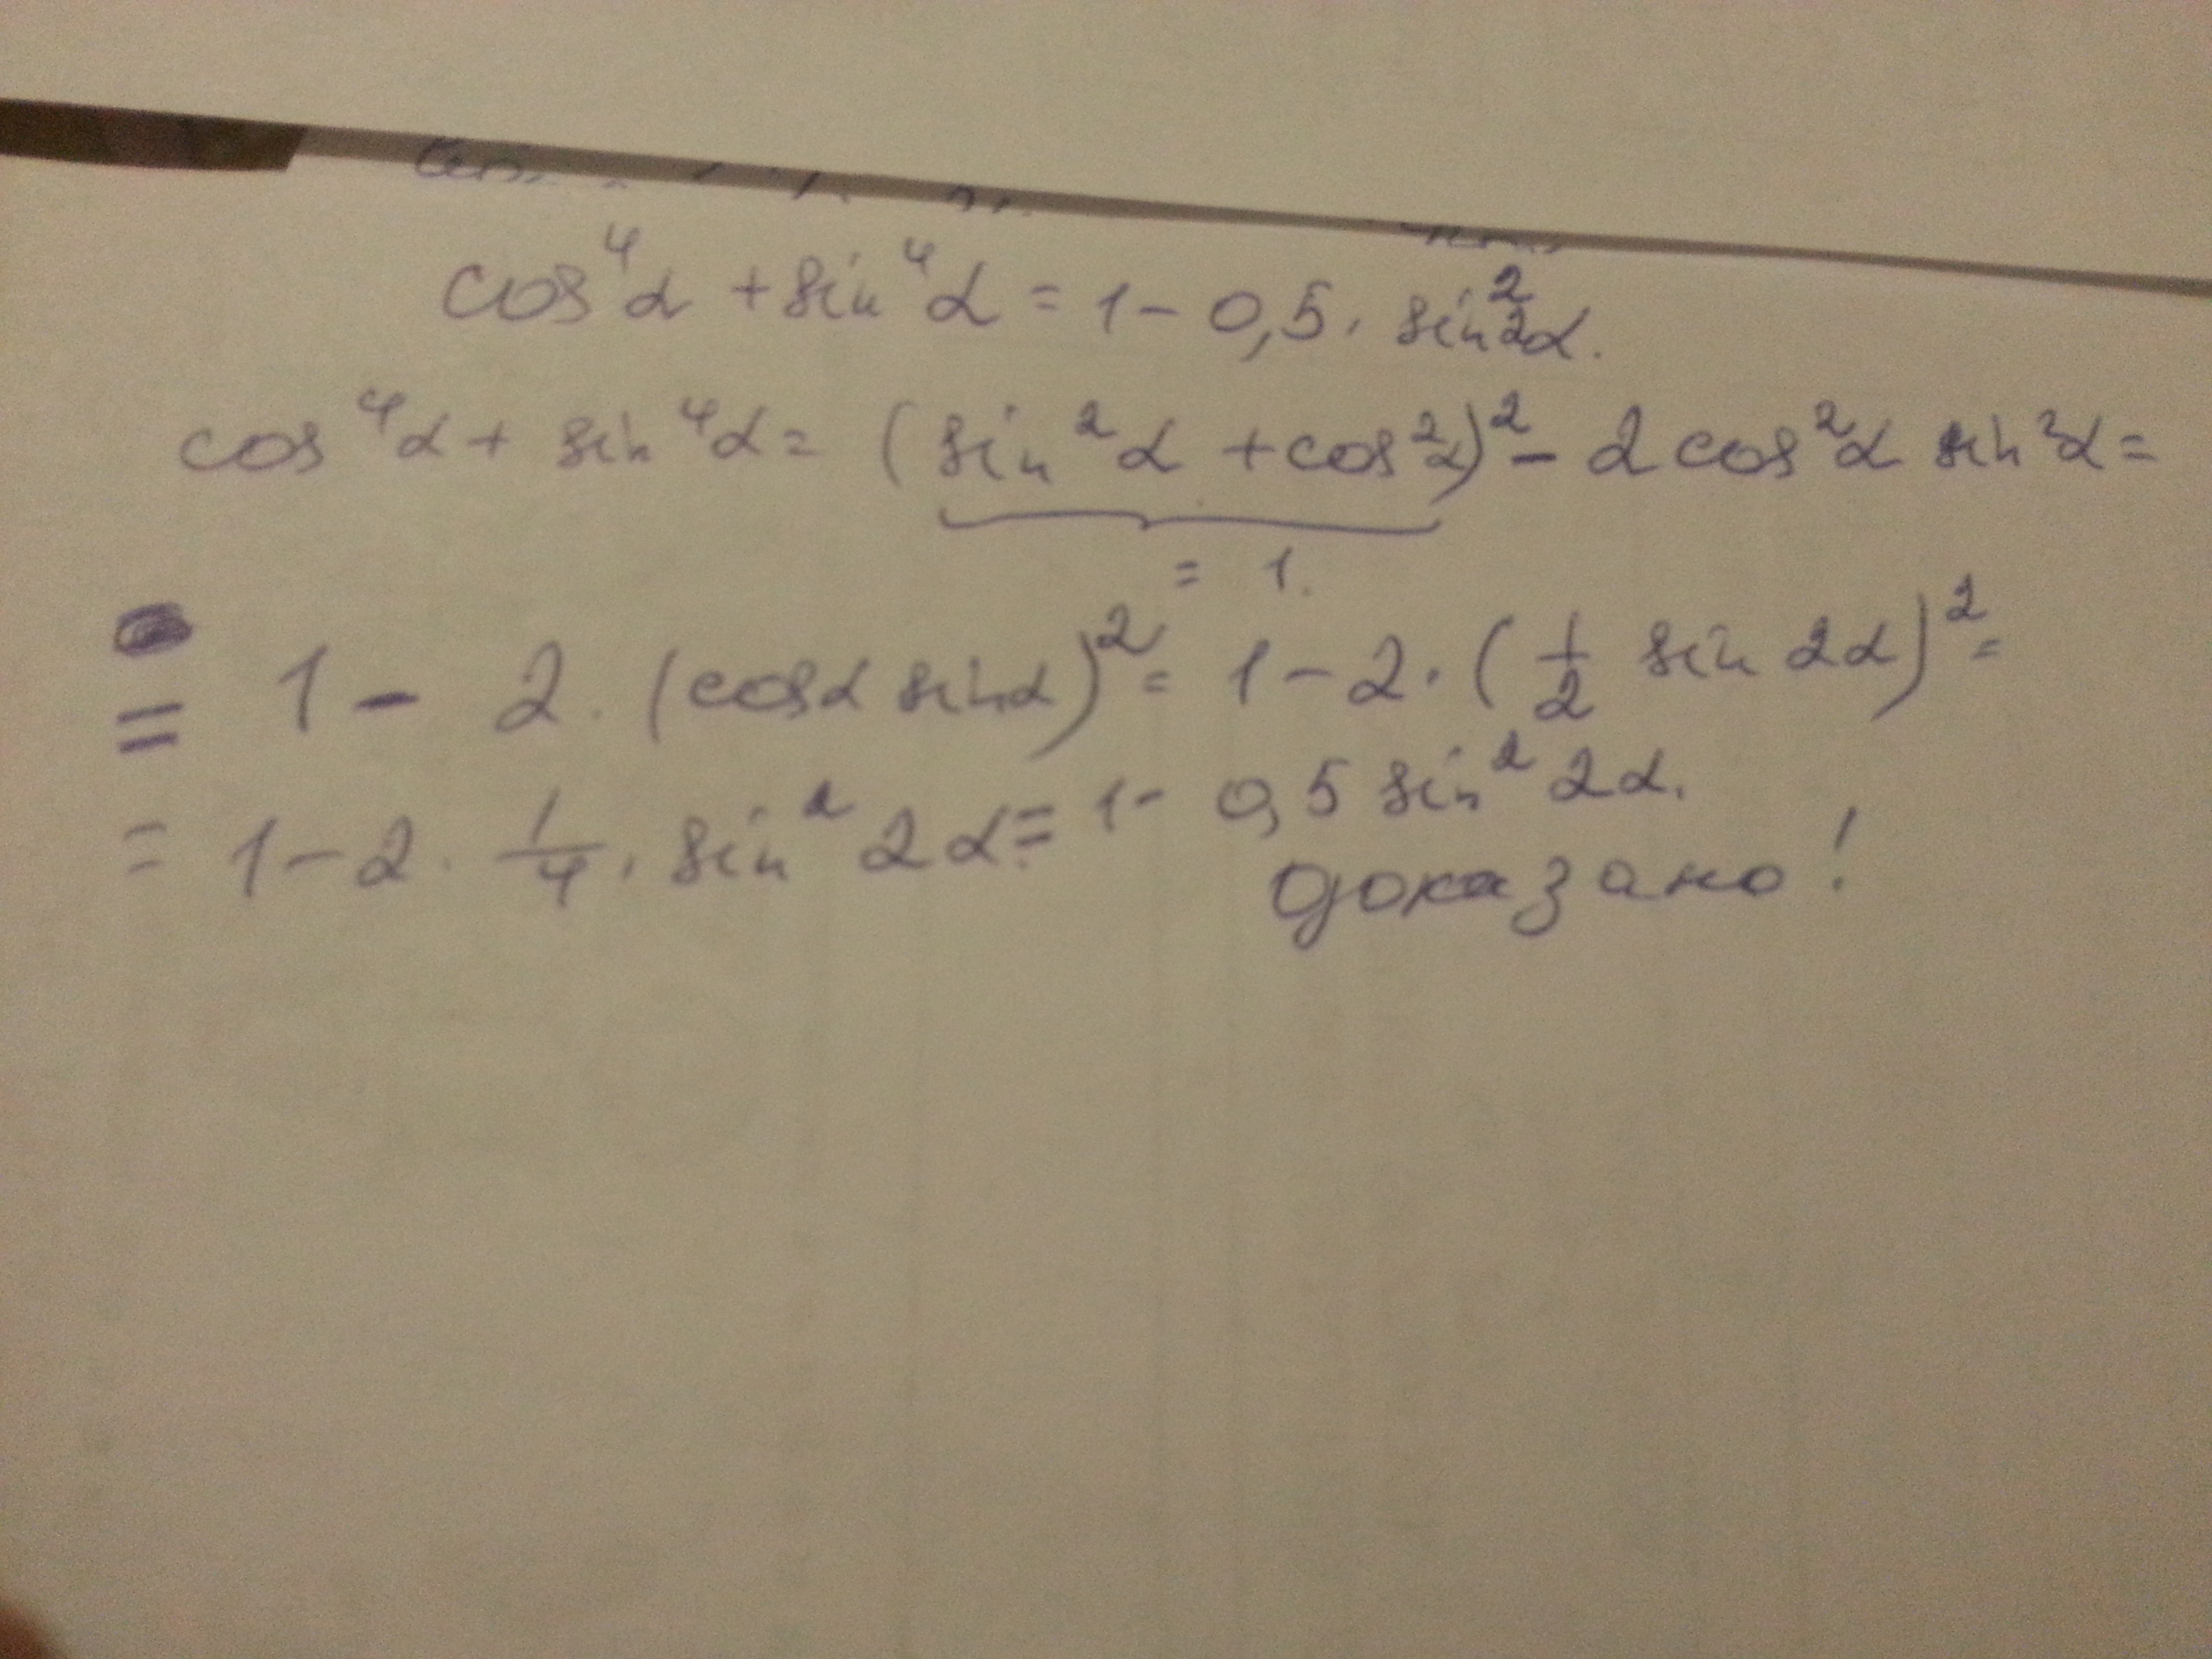 cos⁴α + sin⁴α = 1 - 0,5 · sin²2α.
cos⁴α + sin⁴α = (sin²α + cos²α)² - 2 cos²α sin²α =
= 1.
= 1 - 2 · (cosα sinα)² = 1 - 2 · (1/2 sin 2α)² =
= 1 - 2 · 1/4 · sin² 2α = 1 - 0,5 sin² 2α.
доказано!